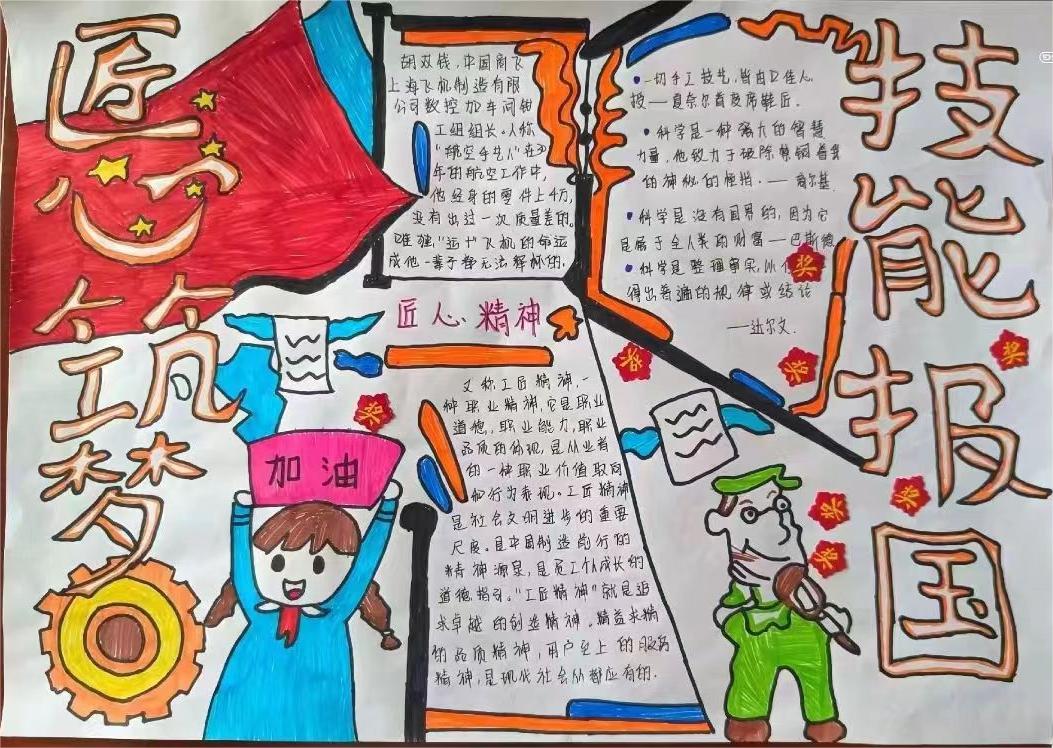 匠心筑梦
技能报国
胡双钱,中国商飞
上海飞机制造有限
公司数控加车间钳
工组组长。人称
"航空手艺人"在30
年的航空工作中,
他经身的零件上4万,
没有出过一次质量差的。
唯独"运十"飞机的命运
成他一辈子都无法释怀的.
一切手工技艺,皆由口传心
授——夏奈尔首度席鞋匠.
科学是一种强大的智慧
力量,他致力于破除禁锢着我
的神秘的桎梏.——高尔基.
科学是没有国界的,因为它
是属于全人类的财富——巴斯德
科学是整理事实,从
得出普遍的规律或结论
——达尔文.
匠人心精神
又称工匠精神,一
种职业精神,它是职业
道德,职业能力,职业
品质的体现,是从业者
的一种职业价值取向
和行为表现。工匠精神
是社会文明进步的重要
尺度。是中国制造前行的
精神源泉,是员工个人成长的
道德指引。"工匠精神"就是追
求卓越的创造精神,精益求精
的品质精神,用户至上的服务
精神,是现代社会从都应有的.
加油
奖
奖
奖
奖
奖
奖
奖
奖